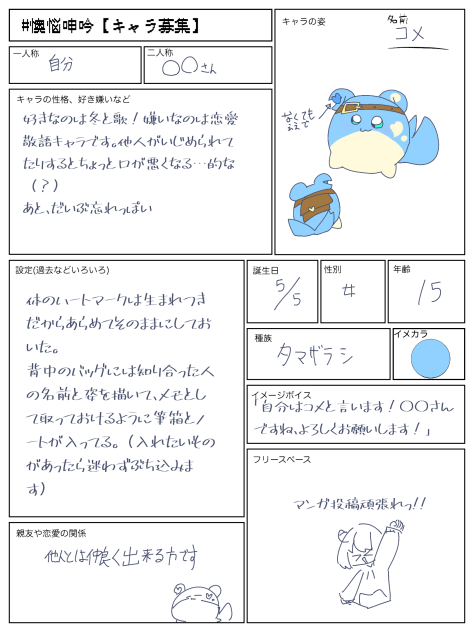 #懊悩呻吟【キャラ募集】
一人称
自分
二人称
○○さん
キャラの姿
名前
コメ
なくても
ええで
キャラの性格、好き嫌いなど
好きなのは冬と歌！嫌いなのは恋愛
敬語キャラです。他人がいじめられて
たりするとちょっと口が悪くなる…的な
（？）
あと、だいぶ忘れっぽい
設定(過去などいろいろ)
体のハートマークは生まれつき
だからあらためてそのままにしてお
いた。
背中のバッグには知り合った人
の名前と姿を描いて、メモとし
て取っておけるように筆箱とノ
ートが入ってる。（入れたいもの
があったら迷わずぶち込みま
す）
誕生日
5/5
性別
年齢
15
種族
タマザラシ
イメカラ
イメージボイス
「自分はコメと言います！○○さん
ですね、よろしくお願いします！」
親友や恋愛の関係
他人とは仲良く出来る方です
フリースペース
マンガ投稿頑張れっ!!